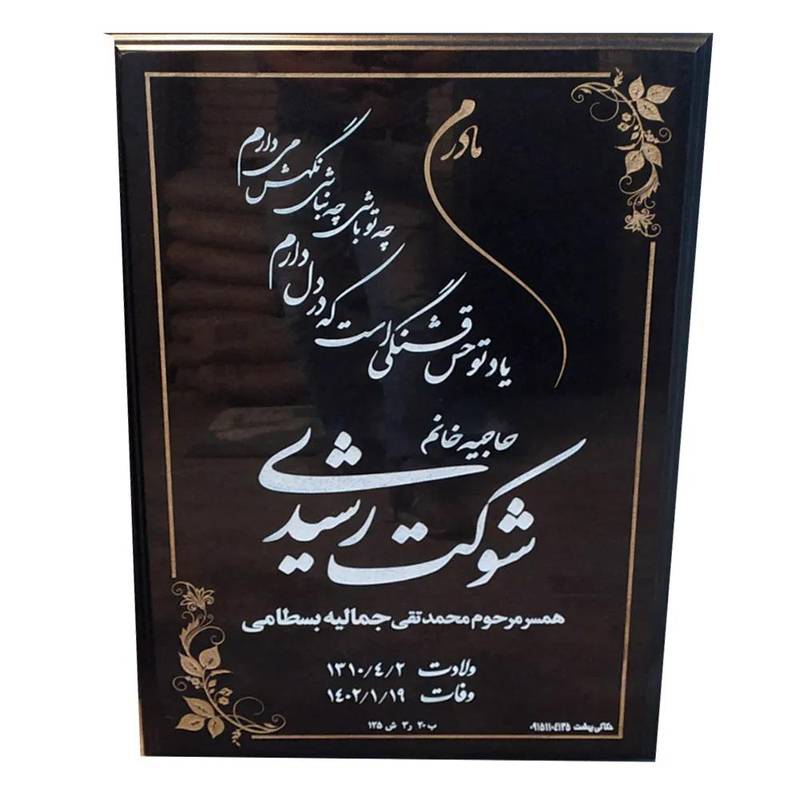 مادرم
چه تو باشی چه نباشی نگهش می دارم
یاد تو حس قشنگی است که در دل دارم
حاجیه خانم
شوکت رشیدی
همسر مرحوم محمدتقی جمالیه بسطامی
ولادت ۱۳۱۰/۴/۲
وفات ۱۴۰۲/۱/۱۹
ب ۲۰ ر ۳ ش ۱۲۵
حکاکی بهشت ۰۹۱۵۱۱۰۴۱۳۵